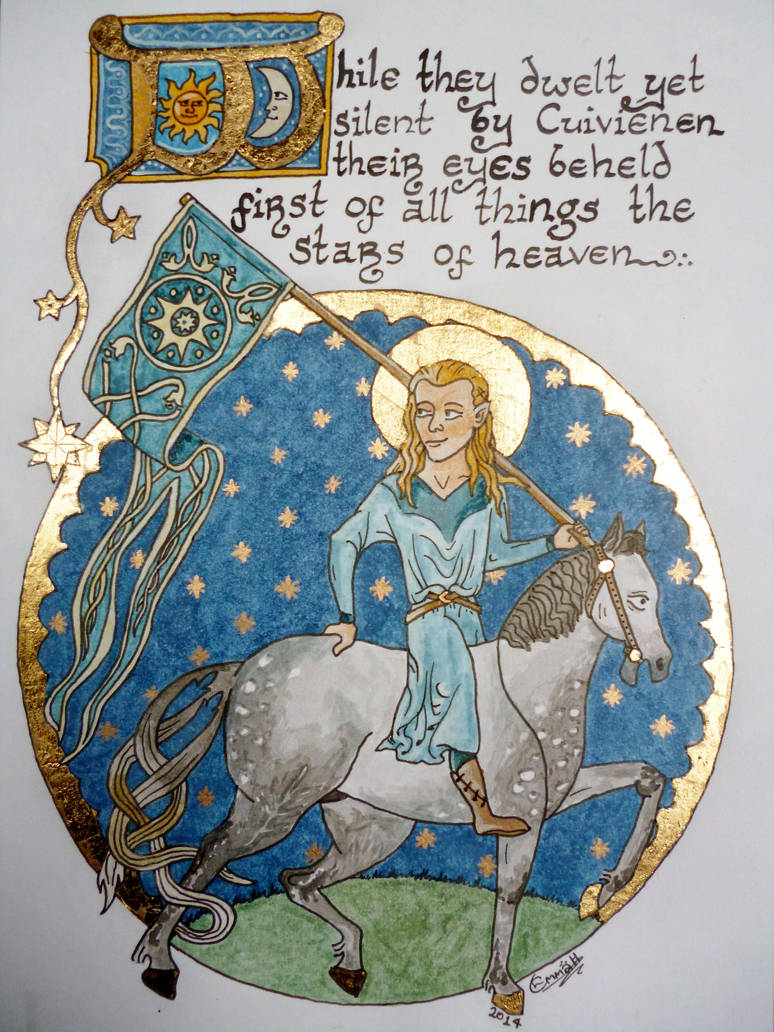 While they dwelt yet
silent by Cuiviénen
their eyes beheld
first of all things the
stars of heaven
2014